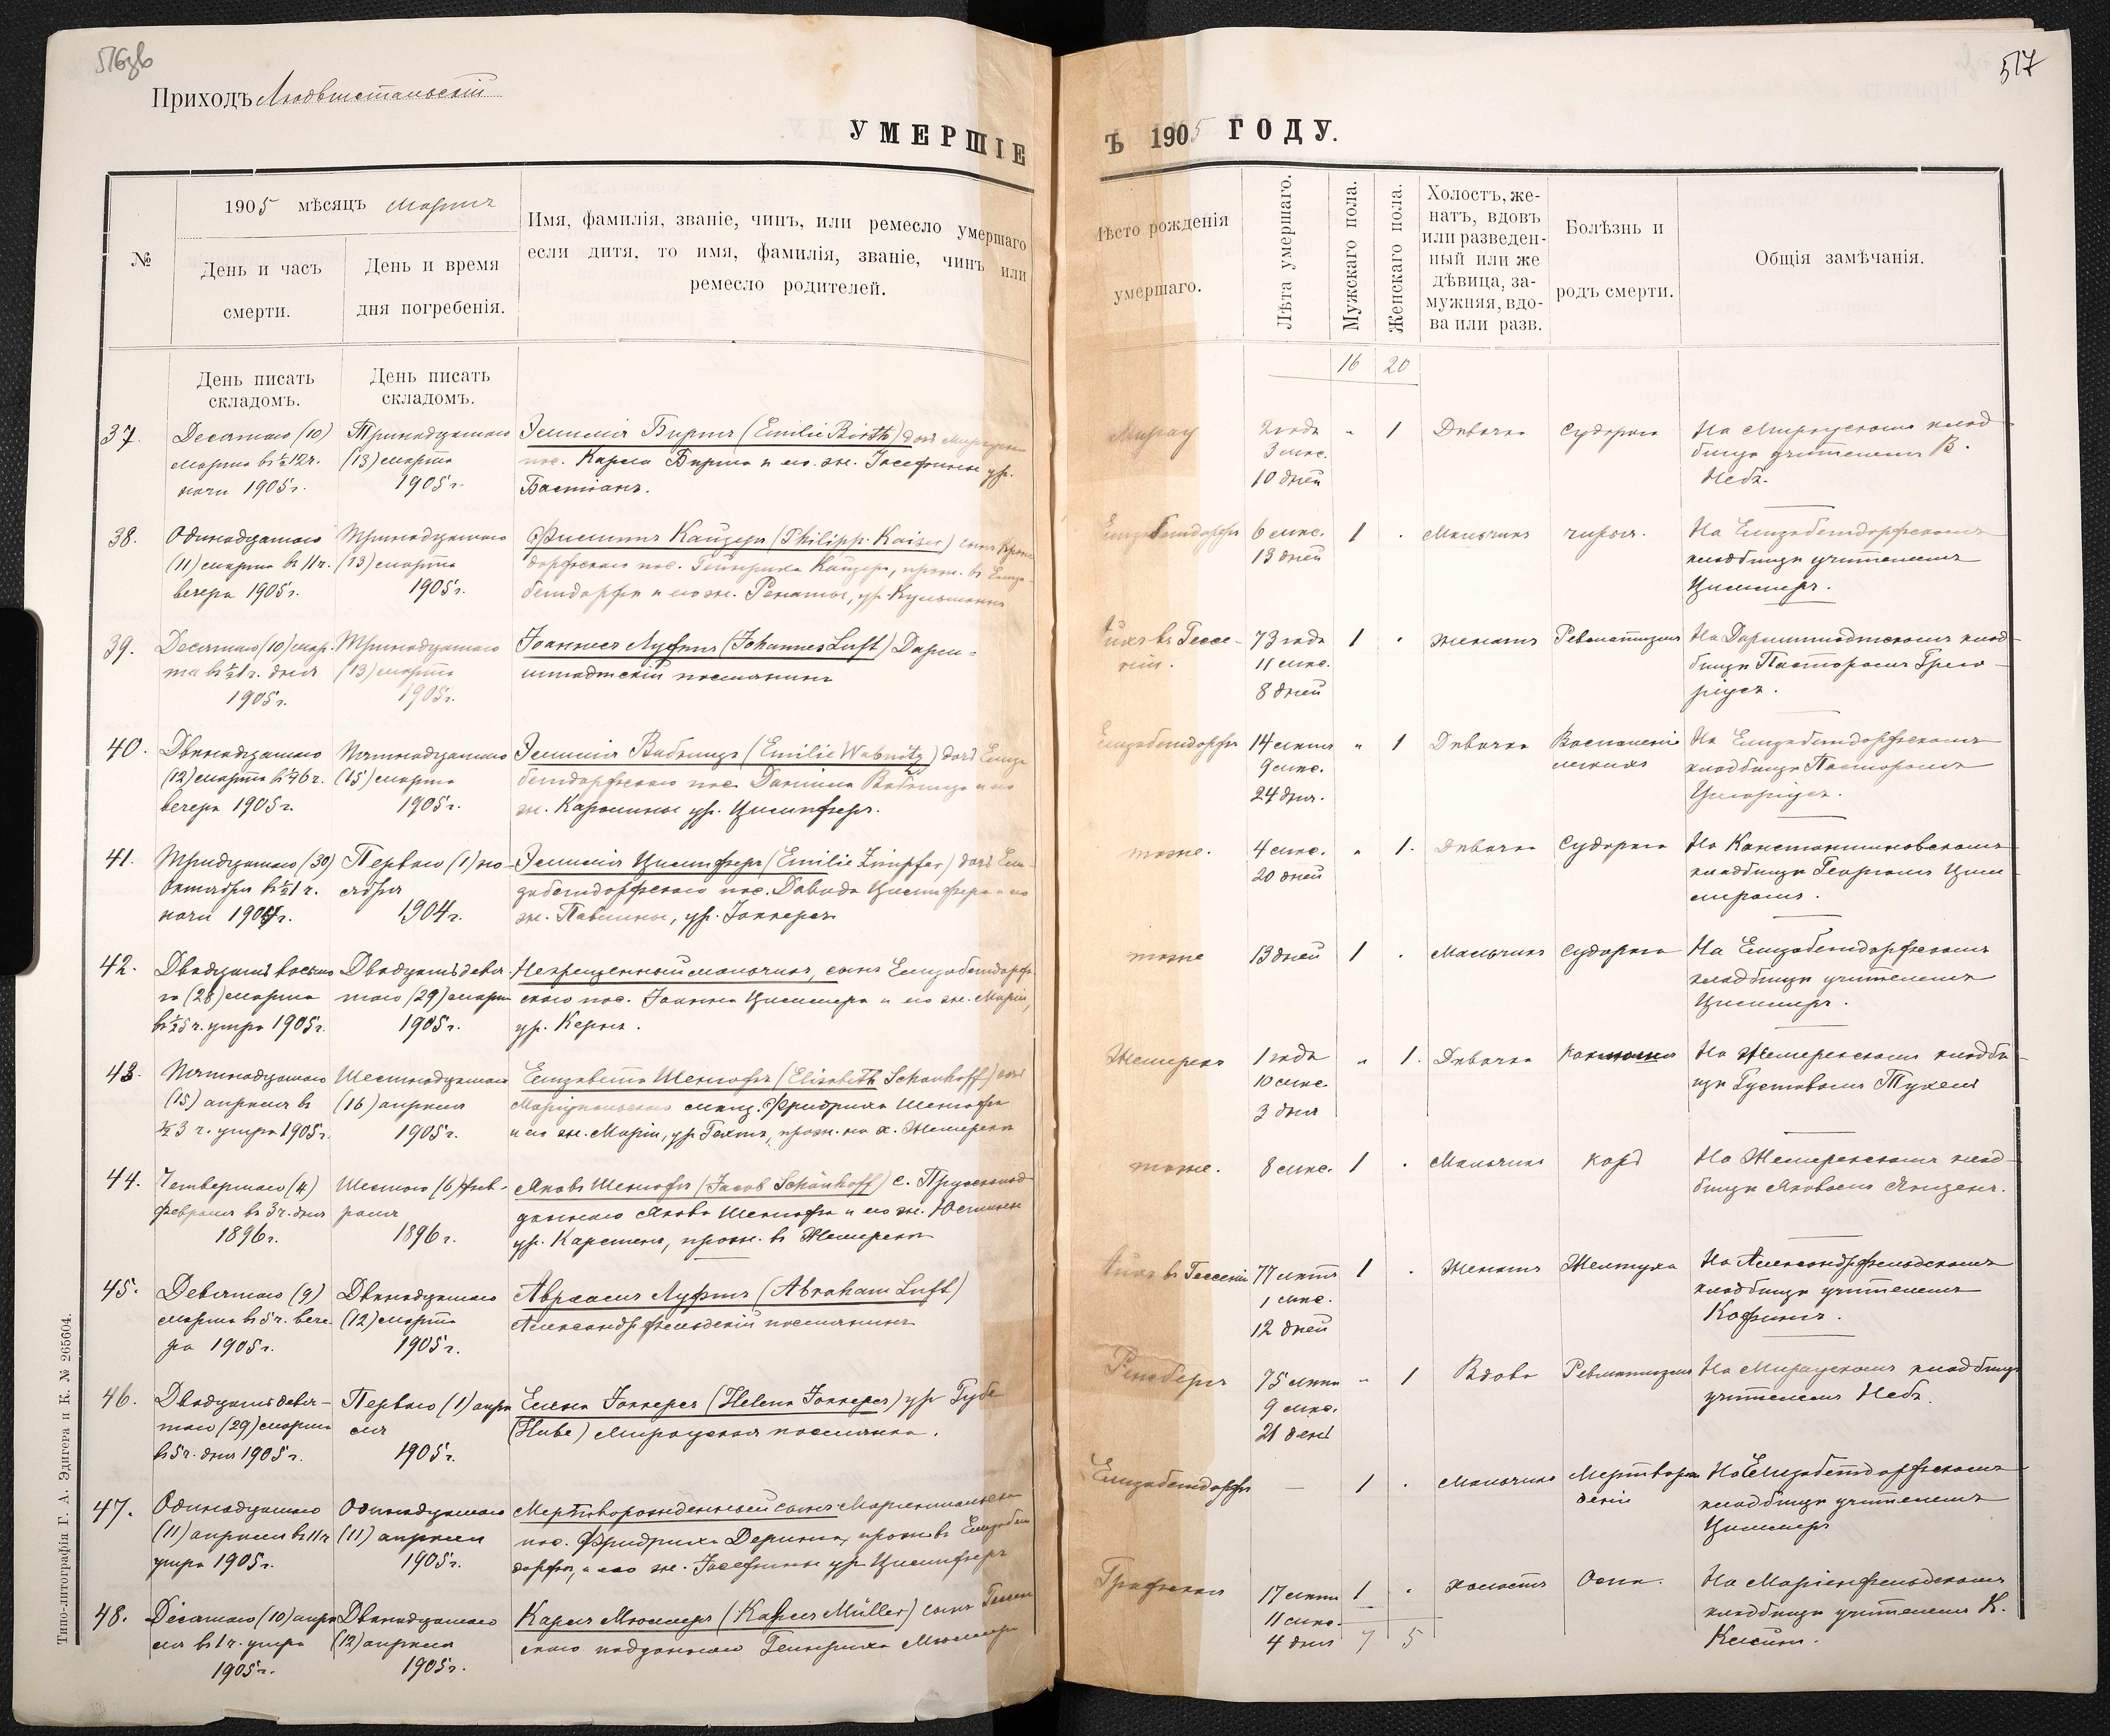 516об
517
Приходъ Людвигстальскій
УМЕРШІЕ
Ъ 1905 ГОДУ.
№
1905 мѣсяцъ Мартъ
День и часъ смерти.
День и время дня погребенія.
Имя, фамилія, званіе, чинъ, или ремесло умершаго
если дитя, то имя, фамилія, званіе, чинъ или
ремесло родителей.
Мѣсто рожденія
умершаго.
Лѣта умершаго.
Мужскаго пола.
Женскаго пола.
Холостъ, же-
натъ, вдовъ
или разведен-
ный или же
дѣвица, за-
мужняя, вдо-
ва или разв.
Болѣзнь и
родъ смерти.
Общія замѣчанія.
День писать
складомъ.
День писать
складомъ.
16 20
37.
Десятаго (10)
марта въ ½12 ч.
ночи 1905 г.
Тринадцатаго
(13) марта
1905 г.
Эмилія Биртъ (Emilie Birth) дочь
пос. Карла Бирта и его ж. Іосефины ур.
Бастіанъ.
Мирау
2 года
3 мѣс.
10 дней
" 1
Дѣвочка
Судорога
На Мираускомъ клад-
бищѣ учителемъ В.
Небъ.
38.
Одинадцатаго
(11) марта въ 11 ч.
вечера 1905 г.
Тринадцатаго
(13) марта
1905 г.
Филиппъ Кайзеръ (Philipp Kaiser) сынъ
дорфскаго пос. Гейнриха Кайзера, прож. въ Елиза-
бетдорфѣ и его ж. Ренаты, ур. Кульманъ
Елизабетдорфъ
6 мѣс.
13 дней
1 .
Мальчикъ
чирья.
На Елизабетдорфскомъ
кладбищѣ учителемъ
Циммеръ.
39.
Десятаго (10) мар-
та въ ½1 ч. дня
1905 г.
Тринадцатаго
(13) марта
1905 г.
Іоаннесъ Луфтъ (Johannes Luft) Дарм-
штадтскій поселянинъ
въ Гессе-
ніи.
73 года
11 мѣс.
8 дней
1 .
женатъ
Ревматизмъ
На Дармштадтскомъ клад-
бищѣ Пасторомъ
40.
Двѣнадцатаго
(12) марта въ ½6 ч.
вечера 1905 г.
Пятнадцатаго
(15) марта
1905 г.
Эмилія Вабницъ (Emilie Wabnitz) дочь Елиза-
бетдорфскаго пос. Даніила Вабница и его
ж. Каролины ур. Цимпферъ.
Елизабетдорфъ
14 лѣтъ
9 мѣс.
24 дня.
" 1
Дѣвочка
Воспаленіе
легкихъ
На Елизабетдорфскомъ
кладбищѣ Пасторомъ
41.
Тридцатаго (30)
Октября въ ½1 ч.
ночи 1904 г.
Перваго (1) но-
ября
1904 г.
Эмилія Цимпферъ (Emilie Zimpfer) дочь Ели-
забетдорфскаго пос. Давида Цимпфера и его
ж. Павлины, ур. Іоннересъ
тоже.
4 мѣс.
20 дней
" 1.
Дѣвочка
Судорога
На Константиновскомъ
кладбищѣ Георгомъ Цим-
мромъ.
42.
Двадцать восьма-
го (28) марта
въ ½5 ч. утра 1905 г.
Двадцать девя-
таго (29) марта
1905 г.
Некрещенный мальчикъ, сынъ Елизабетдорф-
скаго пос. Іоанна Циммера и его ж. Маріи,
ур. Кернъ.
тоже
13 дней
1 .
Мальчикъ
Судорога
На Елизабетдорфскомъ
кладбищѣ учителемъ
Циммеръ.
43.
Пятнадцатаго
(15) апрѣля въ
½3 ч. утра 1905 г.
Шестнадцатаго
(16) апрѣля
1905 г.
Елизавета Шенгофъ (Elisabeth Schönhoff) дочь
Маріупольскаго мѣщ. Фридриха Шенгофа
и его ж. Маріи, ур. Гехтъ, прож. на х.
1 годъ
10 мѣс.
3 дня
" 1.
Дѣвочка
На
щѣ Густавомъ
44.
Четвертаго (4)
февраля въ 3 ч. дня
1896 г.
Шестого (6) фев-
раля
1896 г.
Яковъ Шенгофъ (Jacob Schönhoff) с. Прусскопод-
даннаго Якова Шенгофа и его ж. Юстины
ур. Карстенъ, прож. въ
тоже.
8 мѣс.
1 .
Мальчикъ
Корь
На клад-
бищѣ Яковомъ Янценъ.
45.
Девятаго (9)
марта въ 5 ч. вече-
ра 1905 г.
Двѣнадцатаго
(12) марта
1905 г.
Авраамъ Луфтъ (Abraham Luft)
Александрфельдскій поселянинъ
въ Гессеніи
77 лѣтъ
1 мѣс.
12 дней
1 .
Женатъ
Желтуха
На Александрфельдскомъ
кладбищѣ учителемъ
46.
Двадцать девя-
таго (29) марта
въ 5 ч. дня 1905 г.
Перваго (1) апрѣ-
ля
1905 г.
Елена Іоннересъ (Helena Jonneres) ур. Губе
(Hube) Мирауская поселянка.
75 лѣтъ
9 мѣс.
21 день
" 1
Вдова
Ревматизмъ
На Мираускомъ кладбищѣ
учителемъ Небъ.
47.
Одинадцатаго
(11) апрѣля въ 11 ч
утра 1905 г.
Одинадцатаго
(11) апрѣля
1905 г.
Мертворожденный сынъ
пос. Фридриха Деринга, прож. въ Елизабет-
дорфѣ, и его ж. Іосефины ур. Цимпферъ
Елизабетдорфъ
—
1 .
Мальчикъ
Мертворож-
деніе
На Елизабетдорфскомъ
кладбищѣ учителемъ
Циммеръ
48.
Десятаго (10) апрѣ-
ля въ 1 ч. утра
1905 г.
Двѣнадцатаго
(12) апрѣля
1905 г.
Карлъ Мюллеръ (Карлъ Müller) сынъ Гессен-
скаго подданнаго Гейнриха Мюллера
Графская
17 лѣтъ
11 мѣс.
4 дня
1 .
холостъ
Оспа.
На Маріенфельдскомъ
кладбищѣ учителемъ К.
7 5
Типо-литографія Г. А. Эдигера и К. № 265604.